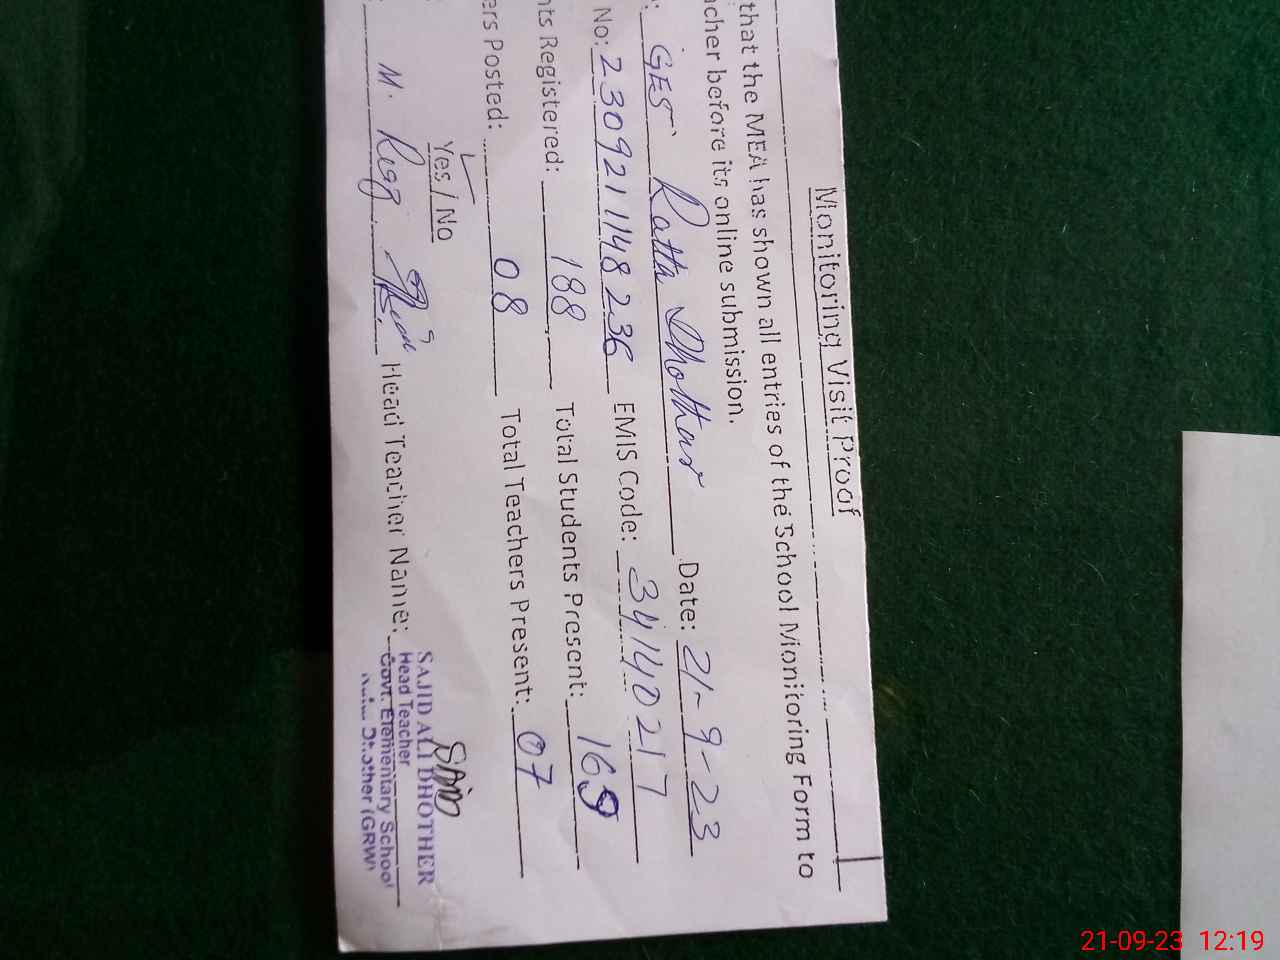 Monitoring Visit Proof
that the MEA has shown all entries of the School Monitoring Form to
cher before its online submission.
: GES Ratta Dhother Date: 21-9-23
No: 230921148236 EMIS Code: 34140217
nts Registered: 188 Total Students Present: 169
ers Posted: 08 Total Teachers Present: 07
Yes / No
M. Head Teacher Name:
SAJID ALI DHOTHER
Head Teacher
Govt. Elementary School
Dhother (GRW)
21-09-23 12:19